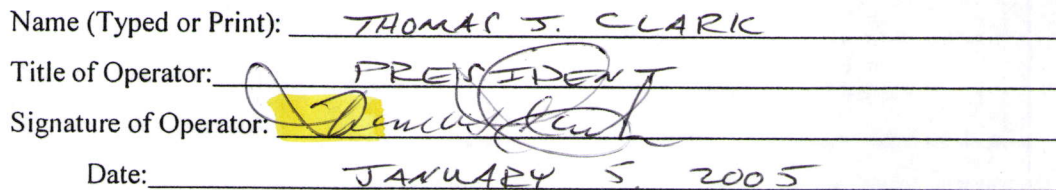 Name (Typed or Print): THOMAS J. CLARK
Title of Operator: PRESIDENT
Signature of Operator: Thomas J. Clark
Date: JANUARY 5, 2005